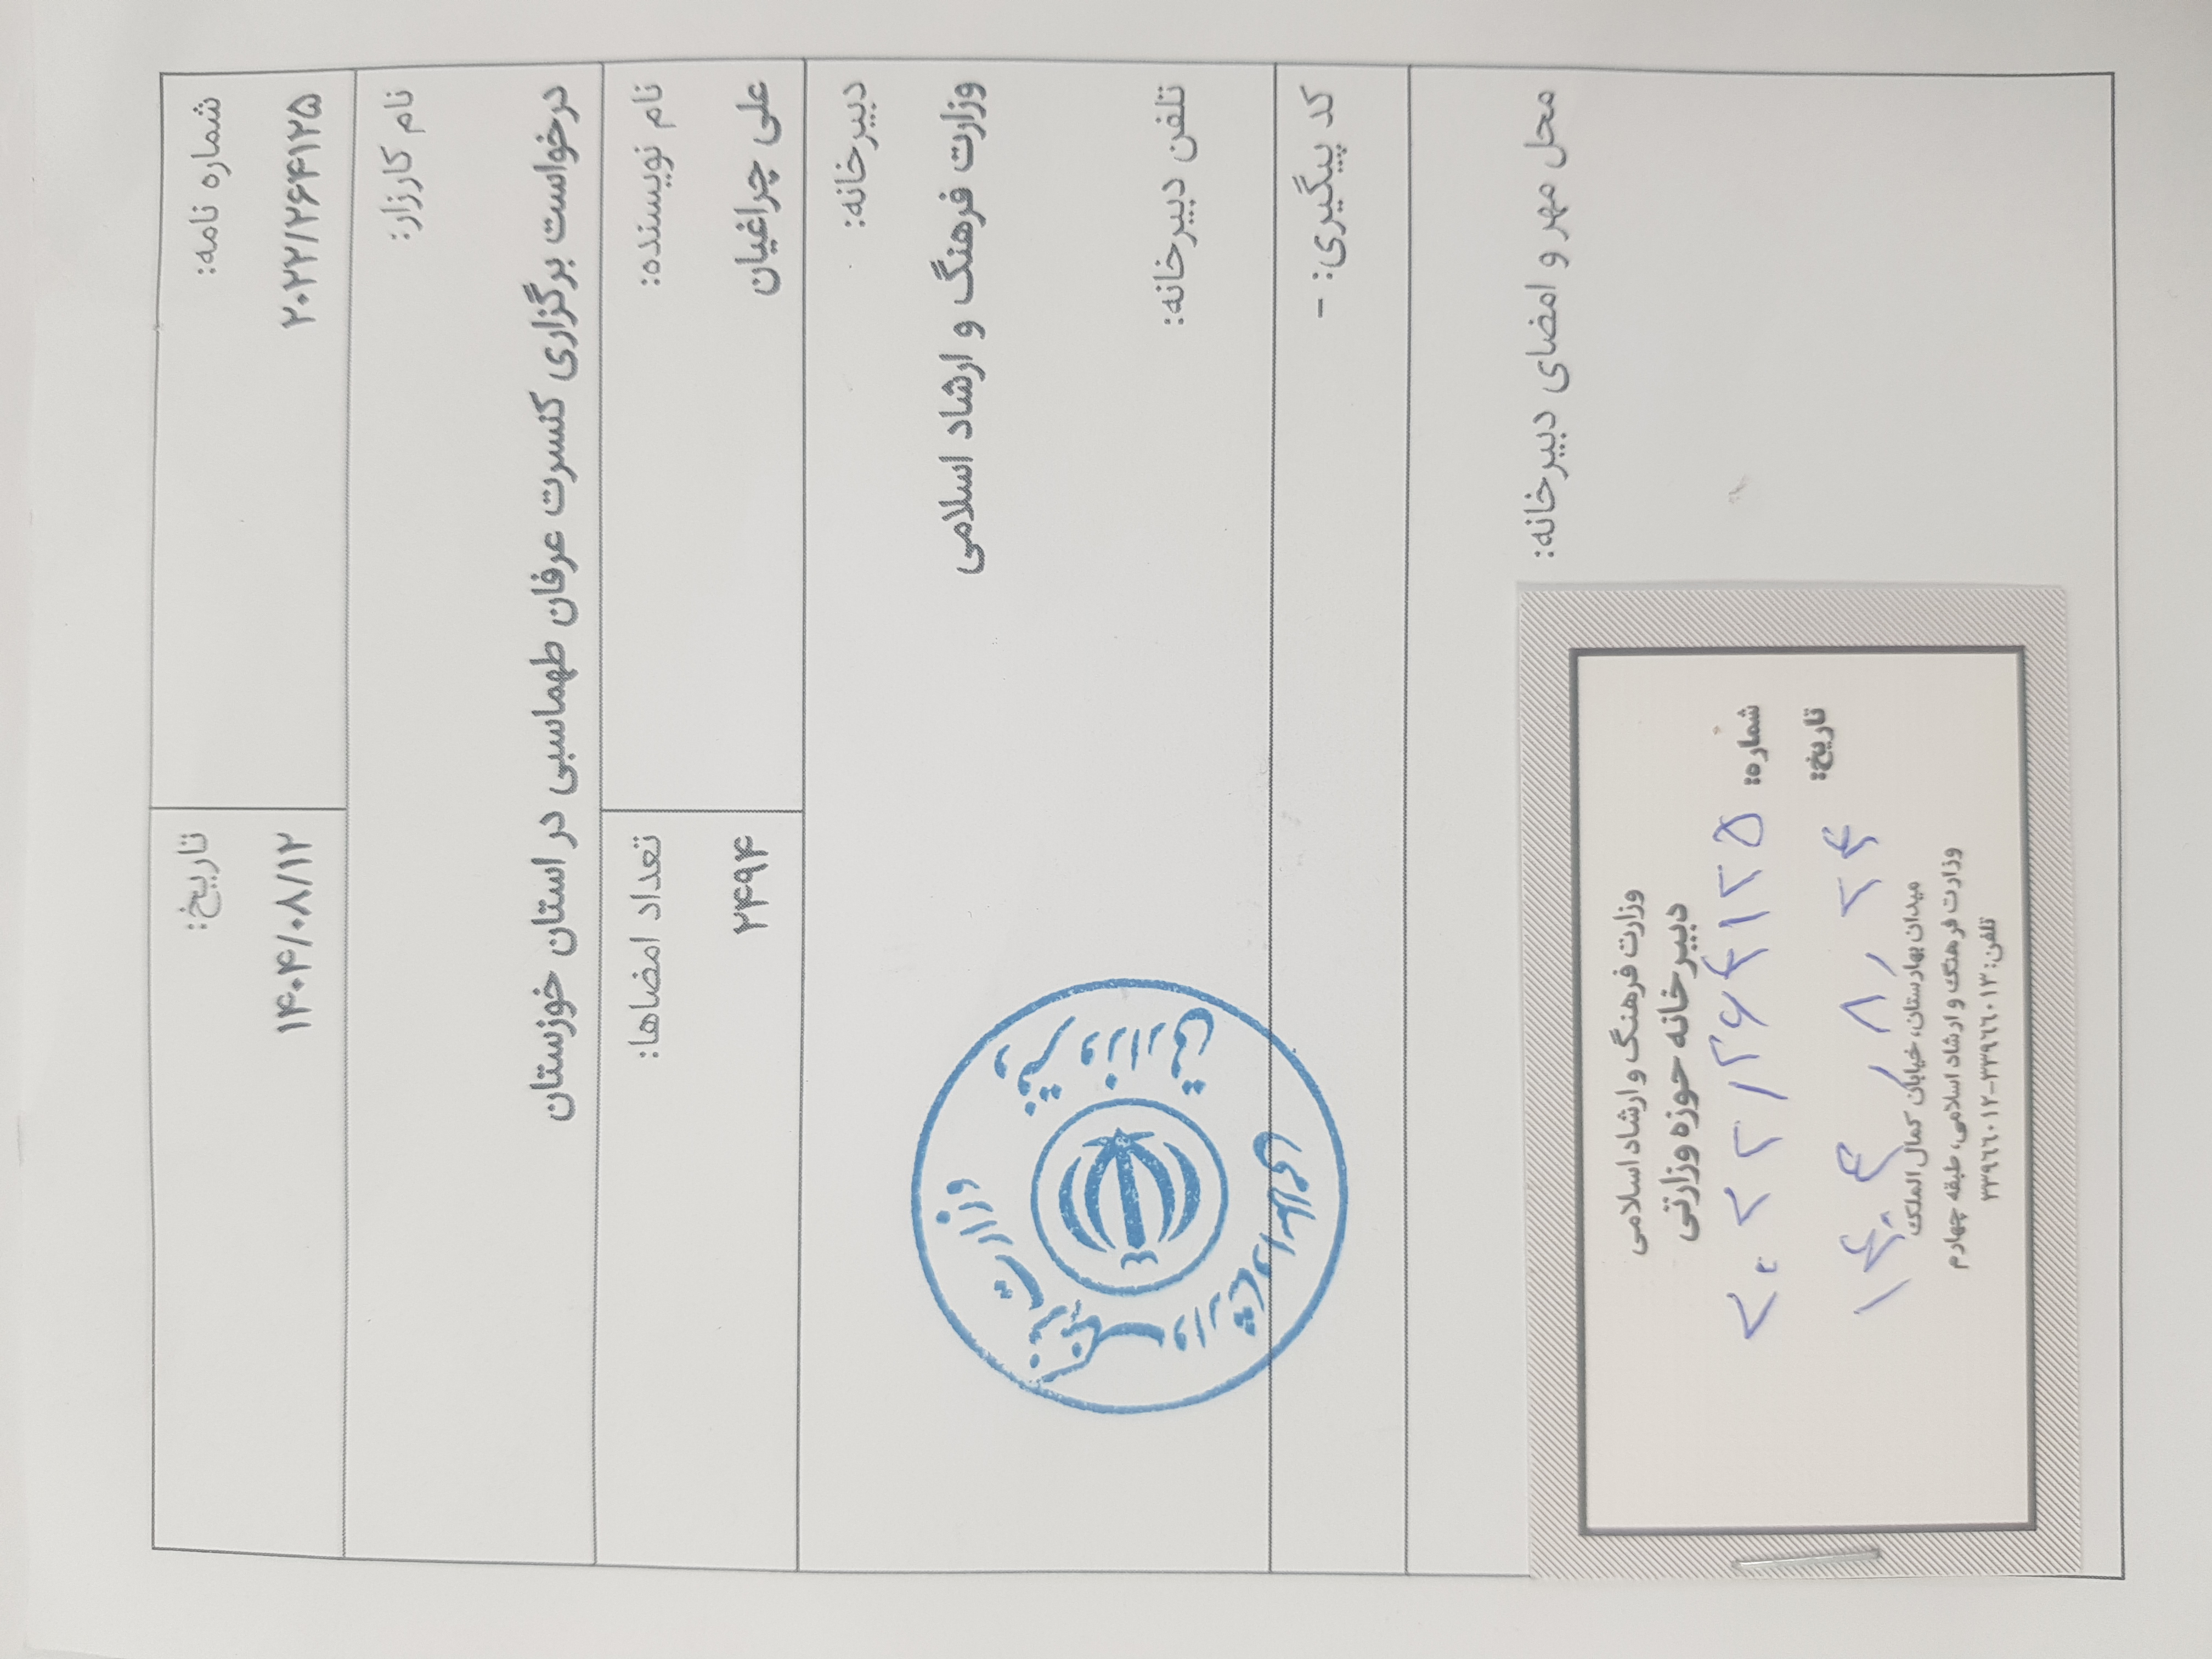 شماره نامه:
۲۰۲۲/۲۶۴۱۲۵
تاریخ:
۱۴۰۴/۰۸/۱۲
نام کارزار:
درخواست برگزاری کنسرت عرفان طهماسبی در استان خوزستان
نام نویسنده:
علی چراغیان
تعداد امضاها:
۲۴۹۴
دبیرخانه:
وزارت فرهنگ و ارشاد اسلامی
تلفن دبیرخانه:
وزارت فرهنگ و ارشاد اسلامی
کد پیگیری: -
محل مهر و امضای دبیرخانه:
وزارت فرهنگ و ارشاد اسلامی
دبیرخانه حوزه وزارتی
شماره: ۲۰۲۲/۲۶۴۱۲۵
تاریخ: ۱۴۰۴/۸/۲۴
میدان بهارستان، خیابان کمال الملک
وزارت فرهنگ و ارشاد اسلامی، طبقه چهارم
تلفن: ۳۳۹۶۶۰۱۳-۳۳۹۶۶۰۱۲